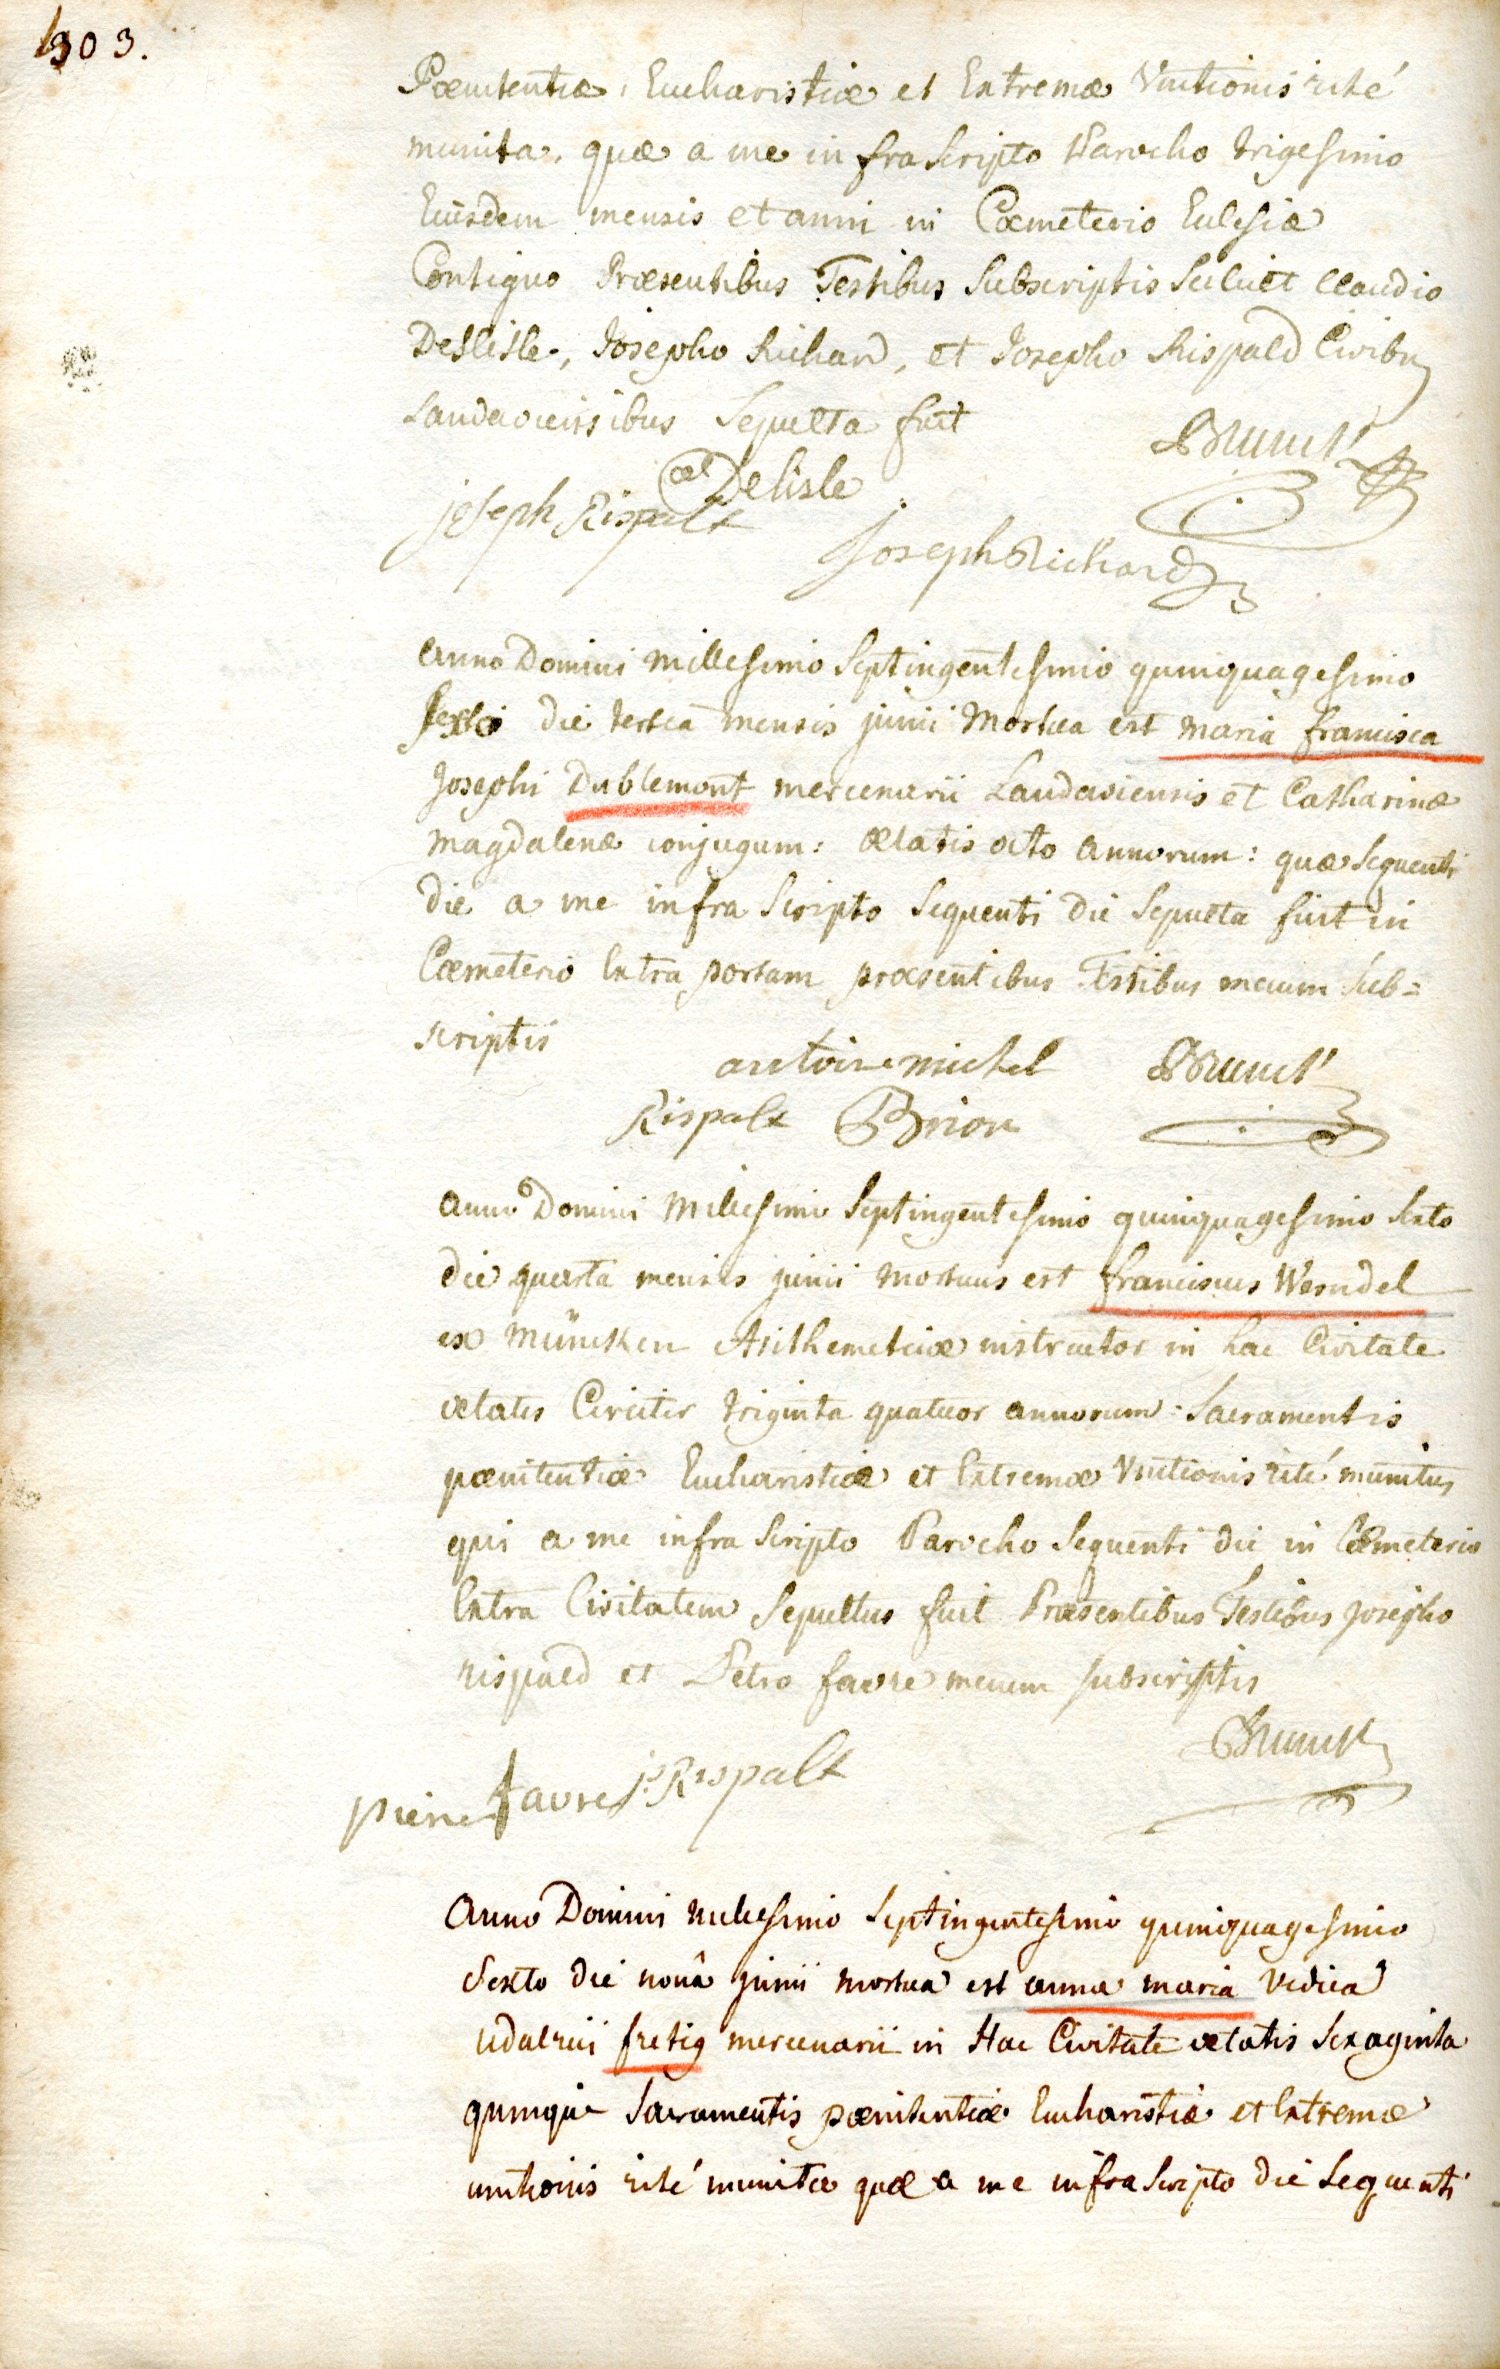 303.
Pœnitentiæ, Eucharistiæ et Extremæ Unctionis rité
munita, quæ a me infra scripto Parocho trigesimo
Eiusdem mensis et anni in Cœmeterio Eclesiæ
Contiguo Præsentibus Testibus Subscriptis Scilicet Claudio
Deslisle, Josepho Richard, et Josepho Rispald Civibus
Landaviensibus Sepulta fuit
Delisle
joseph Rispalt
Joseph Richard
Anno Domini Millesimo Septingentesimo quinquagesimo
Sexto die tertia mensis junii Mortua est maria francisca
Josephi Dublemont mercenarii Landaviensis et Catharinæ
Magdalenæ conjugum: ætatis octo annorum: quæ Sequenti
die a me infra Scripto Sequenti die Sepulta fuit in
Cœmeterio Extra portam præsentibus Testibus mecum Sub=
scriptis
antoine michel
Rispalt Brion
Anno Domini Millesimo Septingentesimo quinquagesimo Sexto
die quarta mensis junii mortuus est franciscus Werndel
ex Müncken Arithemeticæ instructor in hac Civitate
ætatis Circiter triginta quatuor annorum: Sacramentis
pœnitentiæ Eucharistiæ et Extremæ Unctionis rité munitus
qui a me infra Scripto Parocho Sequenti die in Cœmeterio
Extra Civitatem Sepultus fuit Præsentibus Testibus Josepho
rispald et Petro favre mecum subscriptis
pierre favre J. Rispalt
Anno Domini millesimo Septingentesimo quinquagesimo
Sexto die nonâ junii mortua est anna maria vidua
udalrici fretig mercenarii in Hac Civitate ætatis Sexaginta
quinque Sacramentis pœnitentiæ Eucharistiæ et Extremæ
unctionis rité munita quæ a me infra Scripto die Sequenti